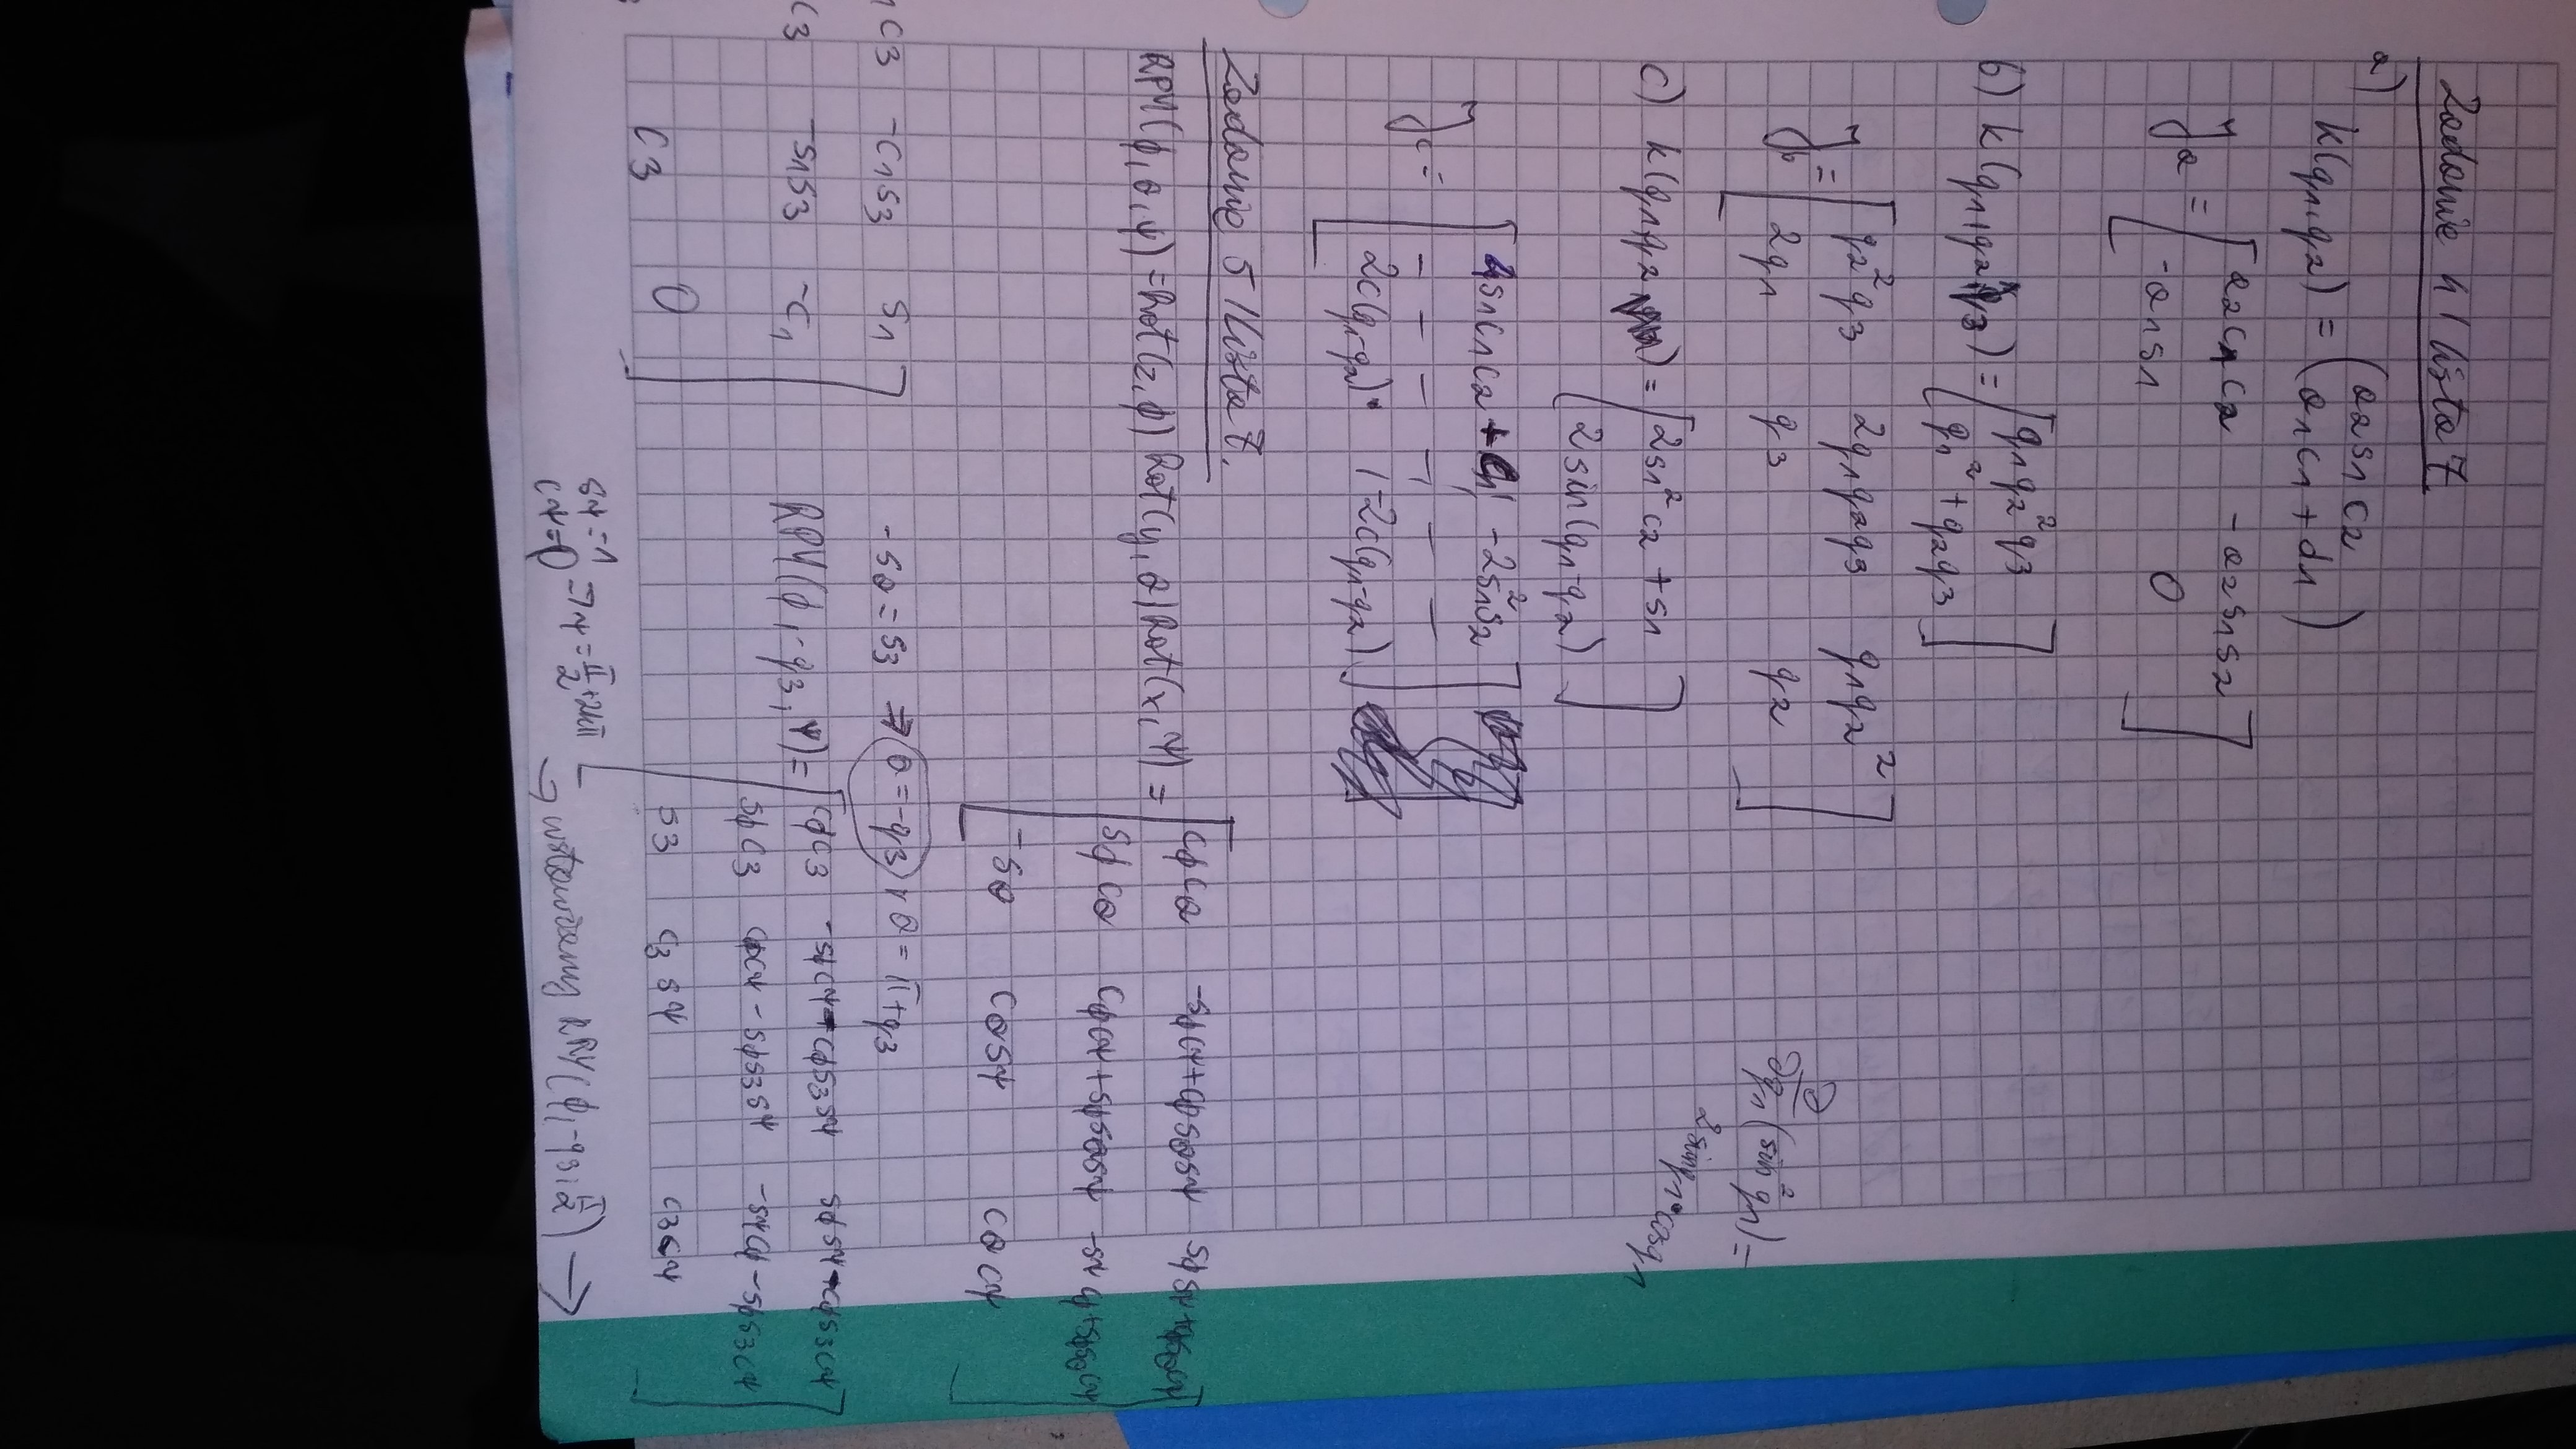 Zadanie 4 lista 7
a)
k(q1,q2) = (a2s1c2
a1c1+d1)
Ja = [a2c1c2 -a2s1s2
-a1s1 0]
b) k(q1,q2,q3) = [q1q2²q3
q1²+q2q3]
Jb = [q2²q3 2q1q2q3 q1q2²
2q1 q3 q2]
∂/∂q1 (sin²q1) =
2sinq1·cosq1
c) k(q1q2) = [2s1²c2+s1
2sin(q1-q2)]
Jc = [4s1c1c2+c1 | -2s1²s2
2c(q1-q2) | -2c(q1-q2)]
Zadanie 5 lista 7.
RPY(φ,θ,ψ) = Rot(z,φ)Rot(y,θ)Rot(x,ψ) = [cφcθ -sφcψ+cφsθsψ sφsψ+cφsθcψ
sφcθ cφcψ+sφsθsψ -sψcφ+sφsθcψ
-sθ cθsψ cθcψ]
1c3 -c1s3 s1
c3 -s1s3 -c1
c3 0
-sθ = s3 ⇒ θ=-q3 ∨ θ=π+q3
RPY(φ,-q3,ψ) = [cφc3 -sφcψ-cφs3sψ sφsψ-cφs3cψ
sφc3 cφcψ-sφs3sψ -sψcφ-sφs3cψ
s3 c3sψ c3cψ]
sψ=1
cψ=0 ⇒ ψ=π/2+2kπ
→ wstawiamy RPY(φ,-q3,π/2) →